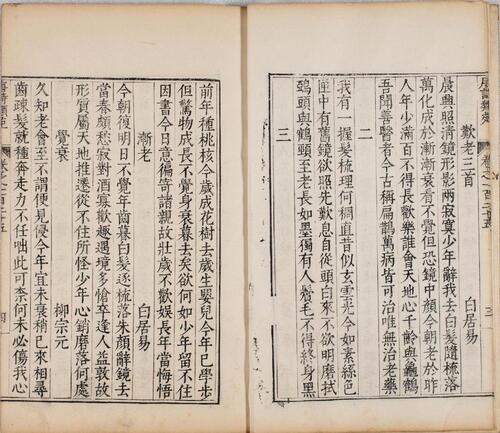 唐詩類苑 卷之一百二十五 三
歎老三首 白居易
晨興照清鏡形影兩寂寞少年辭我去白髮隨梳落
萬化成於漸漸衰看不覺但恐鏡中顏今朝老於昨
人年少滿百不得長歡樂誰會天地心千齡與龜鶴
吾聞善醫者今古稱扁鵲萬病皆可治唯無治老藥
二
我有一握髮梳理何稠直昔似玄雲光今如素絲色
匣中有舊鏡欲照先歎息自從頭白來不欲明磨拭
鵶頭與鶴頸至老長如墨獨有人鬢毛不得終身黑
三
前年種桃核今歲成花樹去歲生嬰兒今年已學步
但驚物成長不覺身衰暮去矣欲何如少年留不住
因書今日意徧寄諸親故壯歲不歡娛長年當悔悟
漸老 白居易
今朝復明日不覺年齒暮白髮逐梳落朱顏辭鏡去
當春頗愁寂對酒寡歡趣遇境多愴辛逢人益敦故
形質屬天地推遷從不住所怪少年心銷磨落何處
覺衰 柳宗元
久知老會至不謂便見侵今年宜未衰稍已來相尋
齒疎髮就種奔走力不任咄此可奈何未必傷我心
唐詩類苑 卷之一百二十五 四